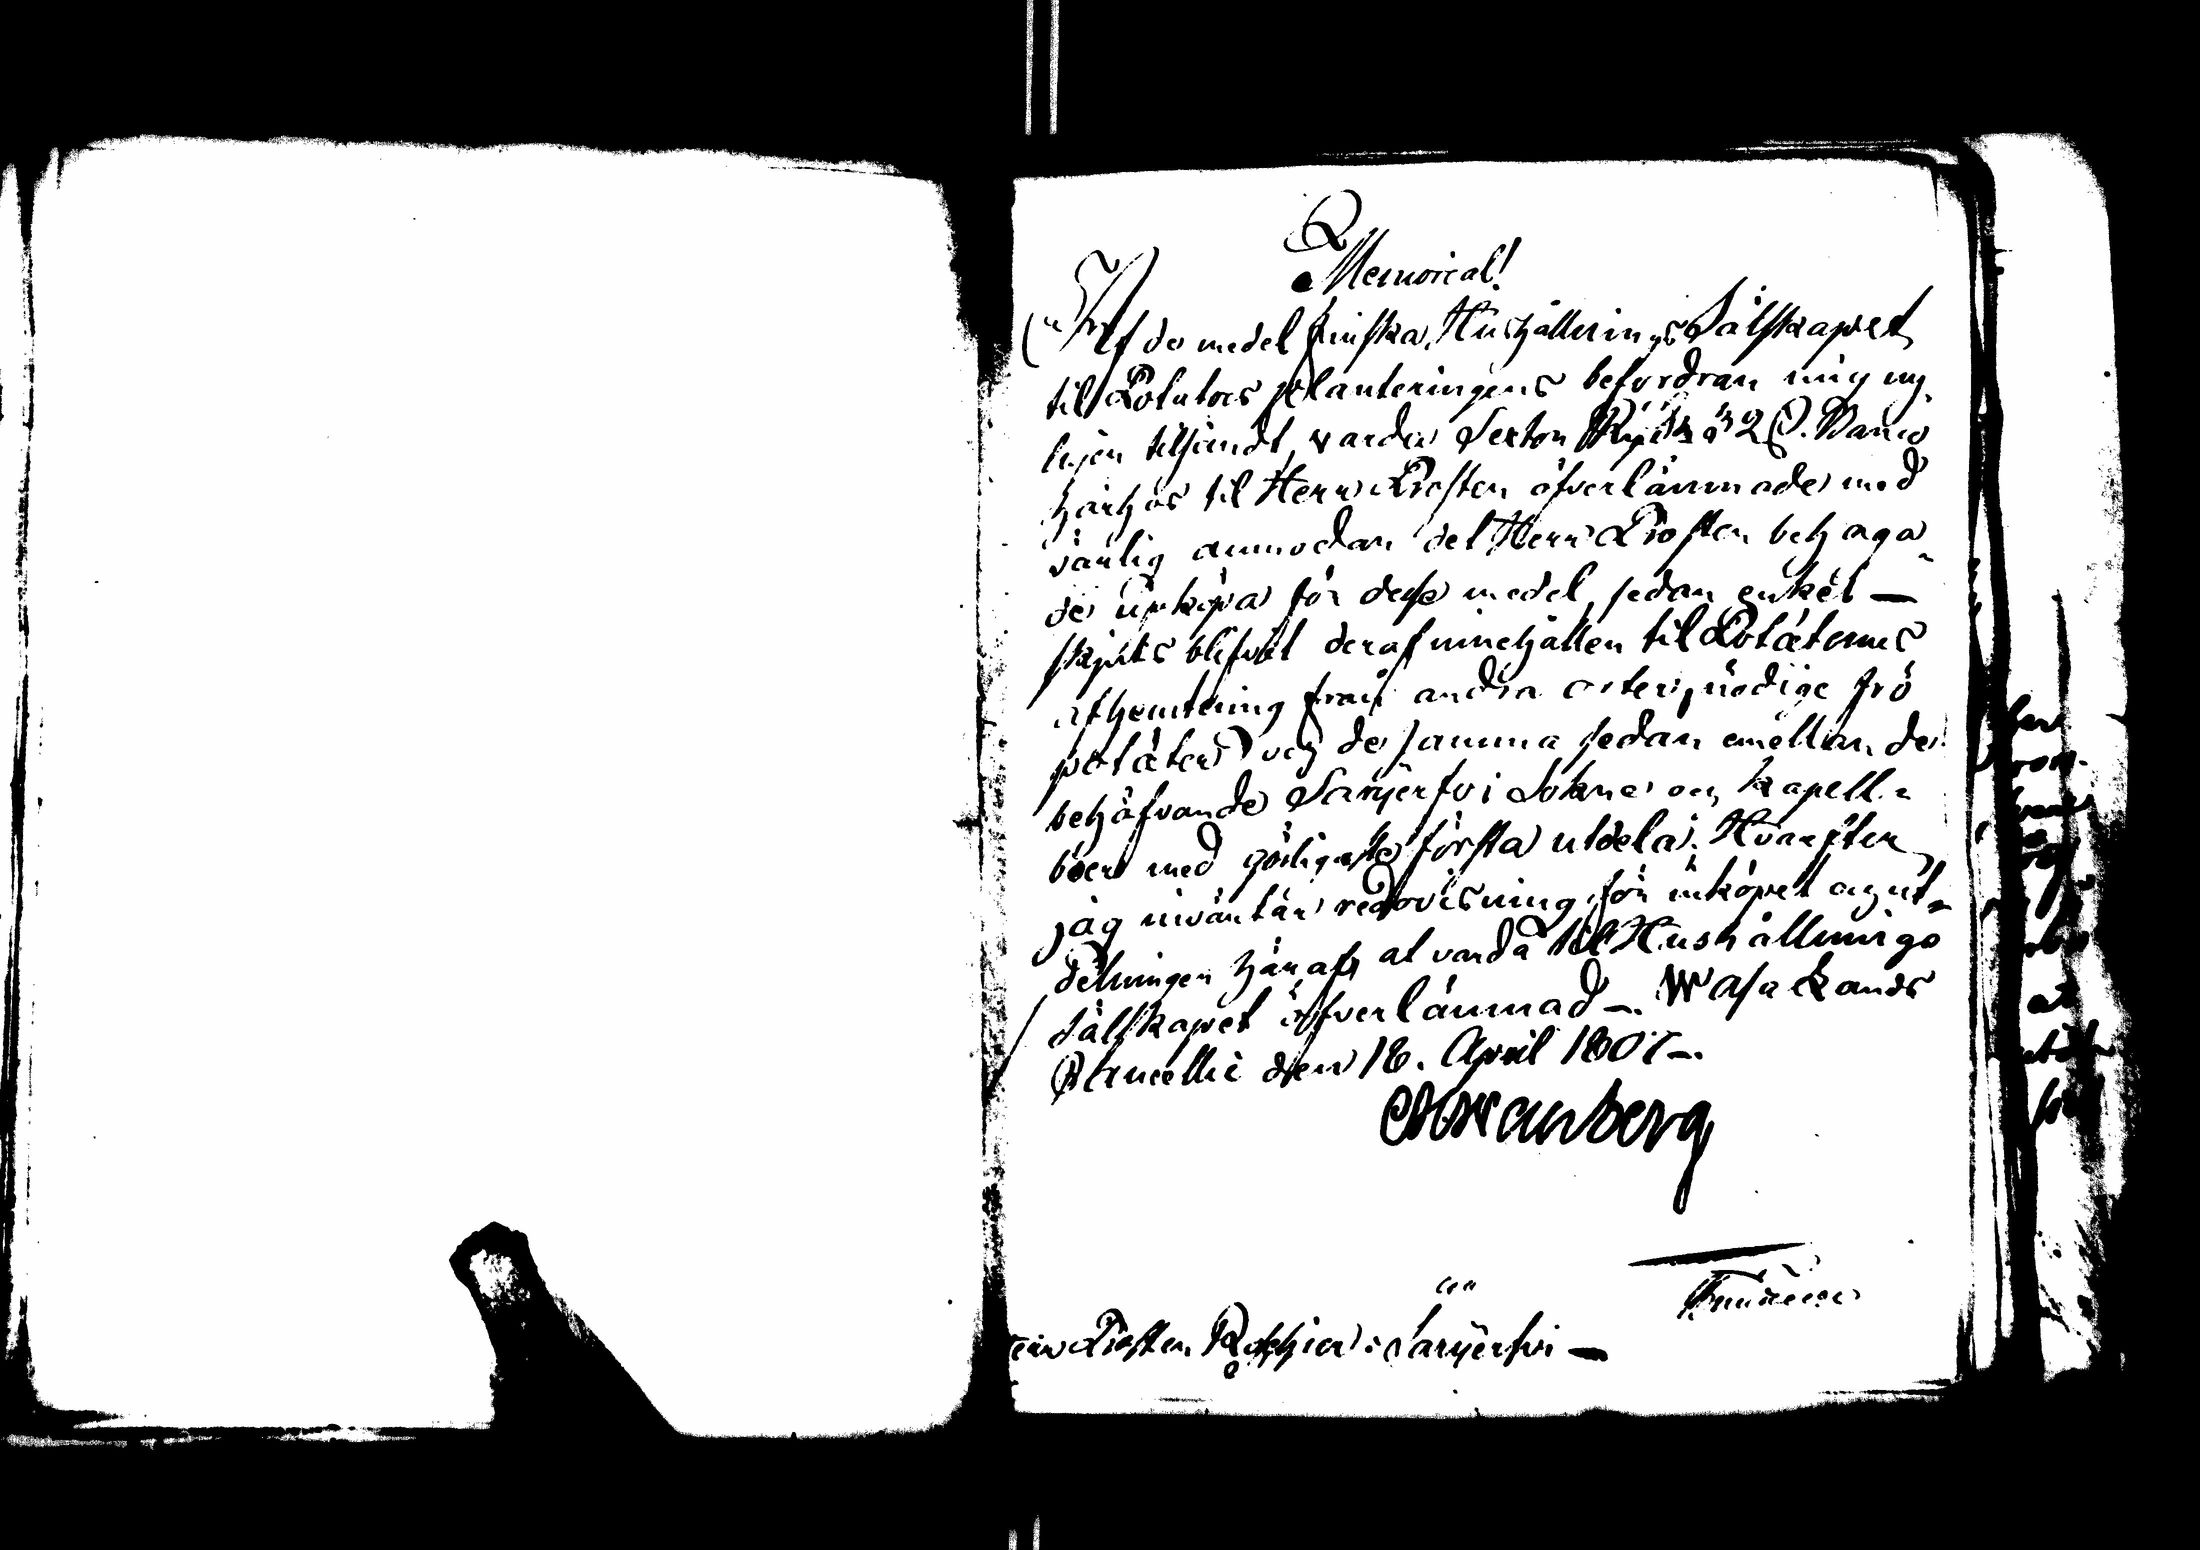 Memorial!
Af de medel Finska Hushållnings Sälskapet
til Potatoes planteringens befordran mig ny-
ligen tilsändt, varda Sexton R. 2 S. Banco
härhos til Herr Prosten öfverlämnade med
vänlig anmodan det Herr Prosten behaga-
de upköpa för desse medel, sedan enkel —
skjuts blifvit deraf innehållen til Potäternes
afhemtning från andra orter, nödige frö
potäter och de samma sedan emellan de
behöfvande Sarijerfvi Sokne och Kapell
boer med görligaste första utdela. Hvarefter
jag inväntar redovisning för inköpet och ut-
delningen häraf, at varda til Hushållnings
Sälskapet öfverlämnad. Wasa Lands
Cancellie den 18. April 1807.
Wanberg
Herr Prosten i Sarijerfvi —